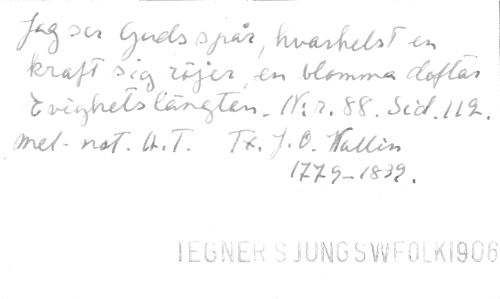 Jag ser Guds spår, hvarhelst en
kraft sig röjer, en blomma doftar
Evighetslängtan. N:r. 88. Sid. 112.
mel. not. A.T. Tx. J. O. Wallin
1779-1839.
TEGNER SJUNGSWFOLK1906